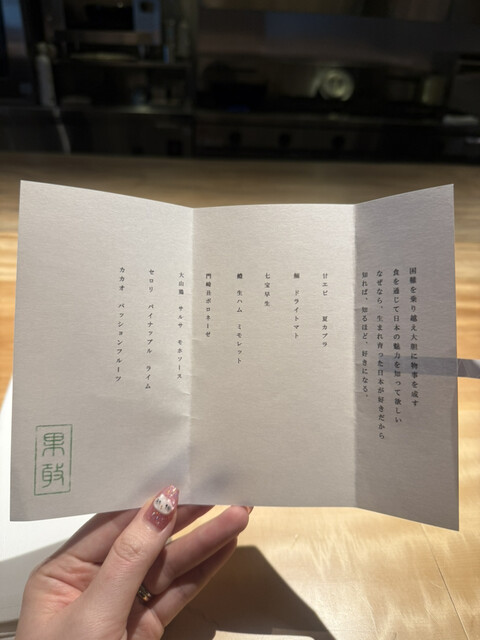 困難を乗り越え大胆に物事を成す
食を通じて日本の魅力を知って欲しい
なぜなら、生まれ育った日本が好きだから
知れば、知るほど、好きになる。
甘エビ 夏カブラ
ドライトマト
七宝早生
生ハム ミモレット
門崎丑ボロネーゼ
大山鶏 サルサ モホソース
セロリ パイナップル ライム
カカオ パッションフルーツ
果敢